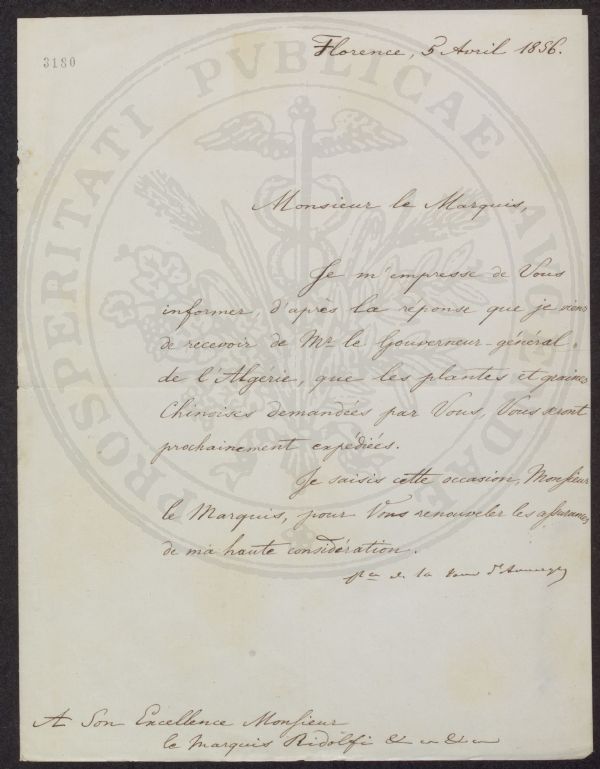 3180
Florence, 5 Avril 1856.
Monsieur le Marquis,
Je m'empresse de Vous
informer, d'après la réponse que je viens
de recevoir de Mr. le Gouverneur-général
de l'Algérie, que les plantes et graines
Chinoises demandées par Vous, Vous seront
prochainement expédiées.
Je saisis cette occasion, Monsieur
le Marquis, pour Vous renouveler les assurances
de ma haute considération.
Pce de la Tour d'Auvergne
A Son Excellence Monsieur
le Marquis Ridolfi &c &c
PROSPERITATI PVBLICAE AVGENDAE